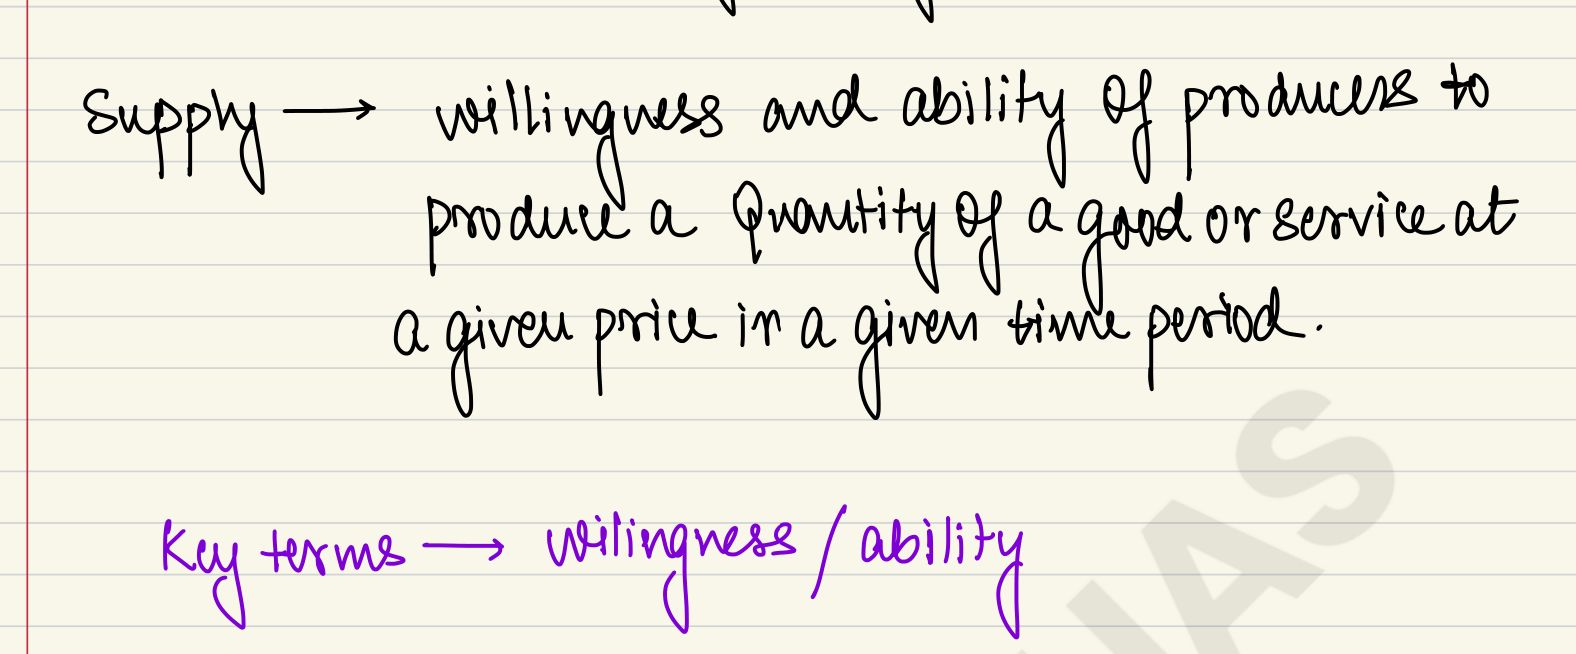 Supply → willingness and ability of producers to
produce a Quantity of a good or service at
a given price in a given time period.
Key terms → wilingness / ability
IAS